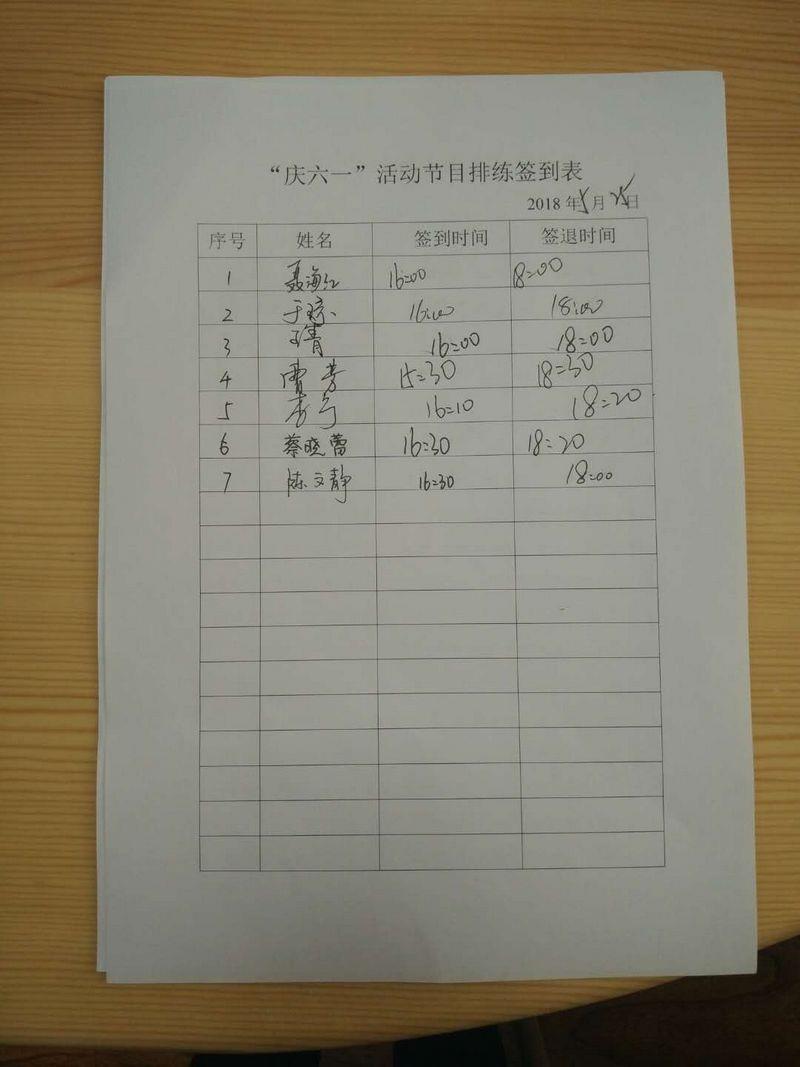 “庆六一”活动节目排练签到表
2018年5月25日
序号 姓名 签到时间 签退时间
1 聂海红 16:00 18:00
2 于琼 16:00 18:00
3 王青 16:00 18:00
4 曹芳 15:30 18:30
5 16:10 18:20
6 蔡晓蕾 16:30 18:20
7 陈文静 16:30 18:00